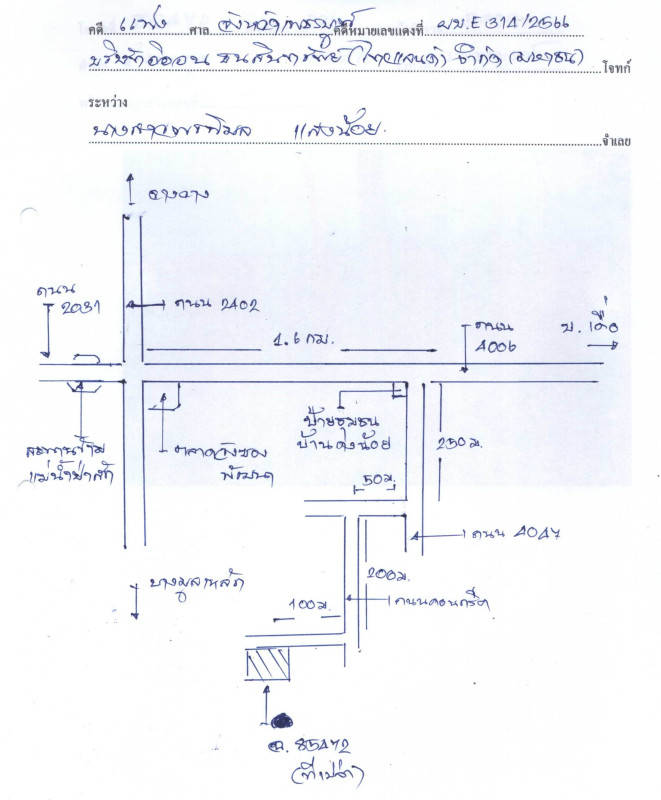 คดี แพ่ง ศาล จังหวัดเพชรบูรณ์ คดีหมายเลขแดงที่ ผบ.E 314/2566
บริษัทอิออน ธนสินทรัพย์ (ไทยแลนด์) จำกัด (มหาชน) โจทก์
ระหว่าง
นางสาวพรพิมล แสงน้อย จำเลย
ถนน
2031
ถนน 2402
1.6 กม.
ถนน
4006
สะพานข้าม
แม่น้ำป่าสัก
ตลาดวังชมภู
พัฒนา
ป้ายชุมชน
บ้านดงน้อย
250 ม.
50 ม.
ถนน 4047
200 ม.
100 ม.
ถนนคอนกรีต
ฉ. 85472
(ที่เปล่า)